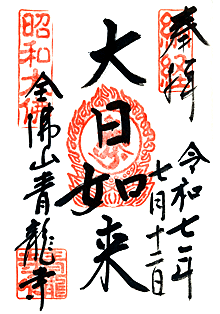 奉拝
令和七年
七月十二日
大日如来
昭和大佛
全佛山青龍寺